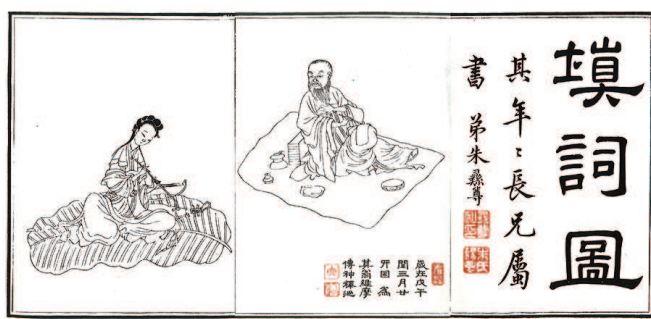 塡詞圖
其年〻長兄屬
書 弟朱彝尊
歲在戊午
閏三月廿
四日 為
其翁維摩
傳神釋汕